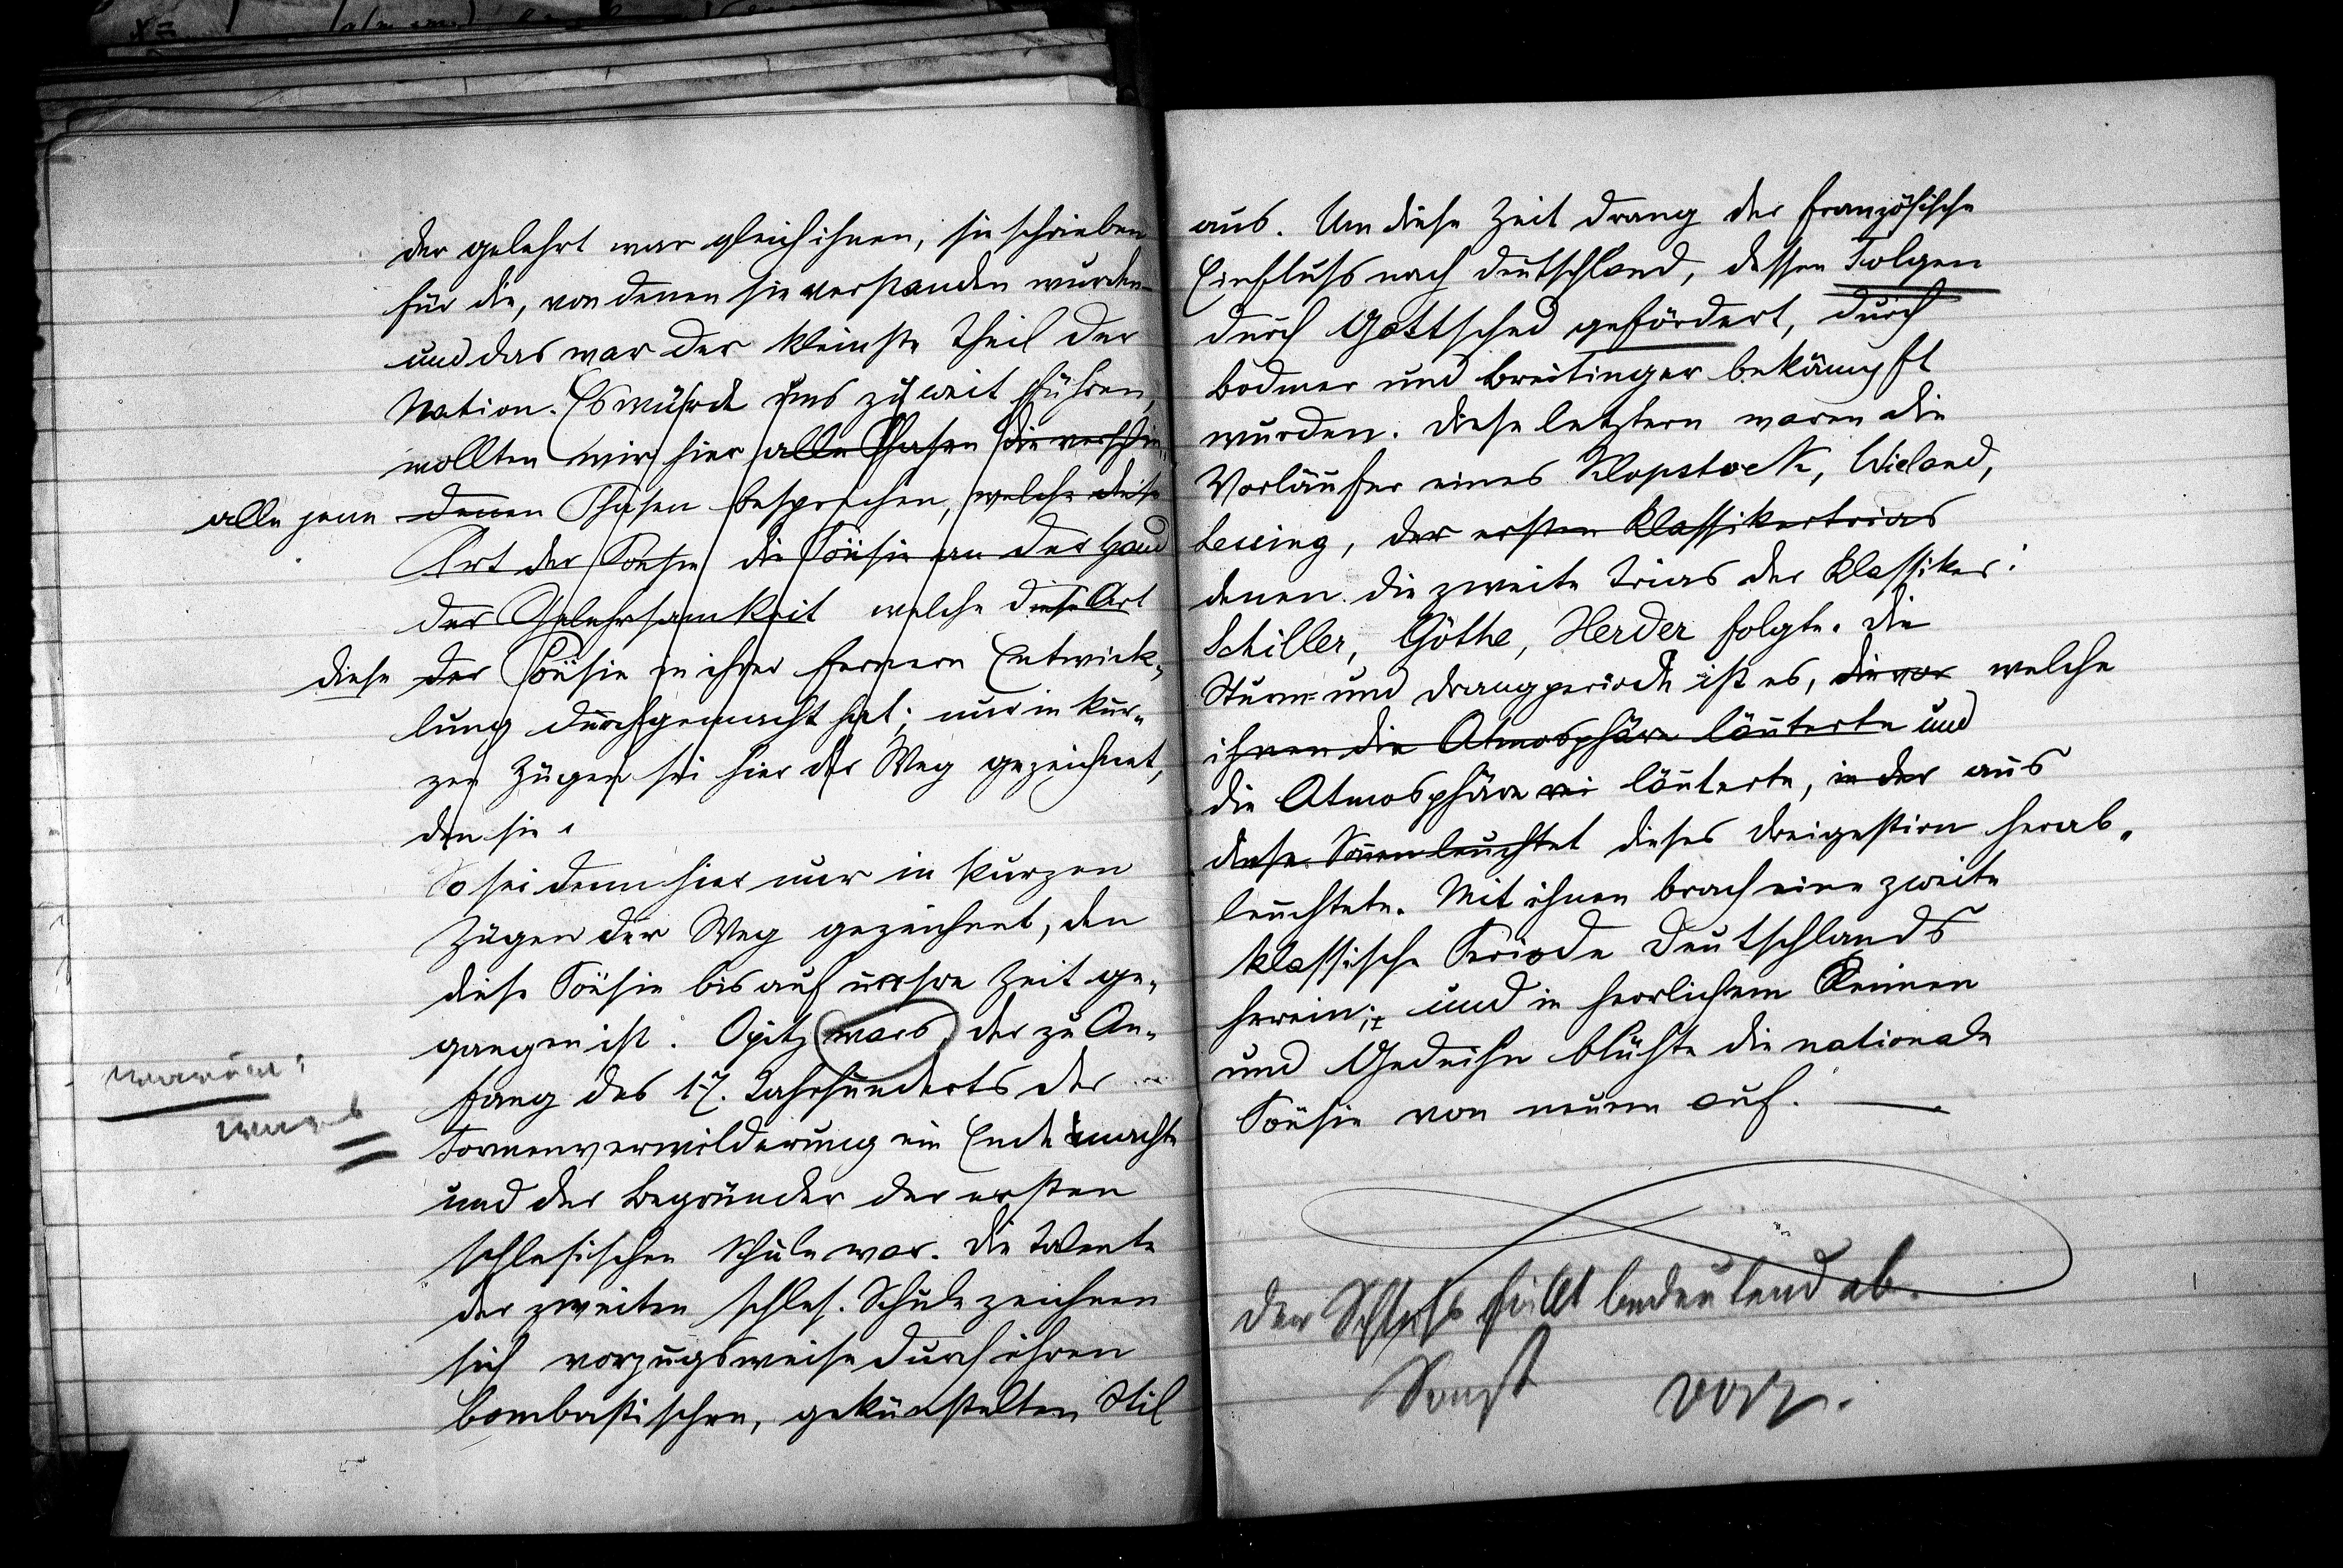 der gelehrt war gleich ihnen, sie schrieben
für die, von denen sie verstanden wurden
und das war der kleinste Theil der
Nation. Es würde uns zu weit führen,
wollten wir hier alle Phasen die verschie„
alle jene denen Phasen besprechen, welche diese
Art der Poesie die Poësie an der Hand
der Gelehrsamkeit welche diese Art
diese der Poësie in ihrer fernern Entwick„
lung durchgemacht hat; nur in kur„
zen Zügen sei hier der Weg gezeichnet,
den sie
So sei denn hier nur in kurzen
Zügen der Weg gezeichnet, den
diese Poësie bis auf unsre Zeit ge„
gangen ist. Opitz wars, der zu An„
fang des 17. Jahrhunderts der
Formenverwilderung ein Ende machte
und der Begründer der ersten
schlesischen Schule war. Die Talente
der zweiten schles. Schule zeichnen
sich vorzugsweise durch ihren
bombastischen, gekünstelten Stil
aus. Um diese Zeit drang der französische
Einfluss nach Deutschland, dessen Folgen
durch Gottsched gefördert, durch
Bodmer und Breitinger bekämpft
wurden. Diese letztern waren die
Vorläufer eines Klopstock, Wieland,
Lessing, der ersten Klassikertrias
denen die zweite Trias der Klassiker:
Schiller, Göthe, Herder folgte. Die
Sturm- und Drangperiode ist es, die vor welche
ihnen die Atmosphäre läuterte und
die Atmosphäre läuterte, in der aus
diese Sonnen leuchtet dieses Dreigestirn herab„
leuchtete. Mit ihnen brach eine zweite
klassische Periode Deutschlands
herein; und in herrlichem Keimen
und Gedeihn blühte die nationale
Poësie von neuem auf. —
Der Schluss fällt bedeutend ab.
Sonst vorz.